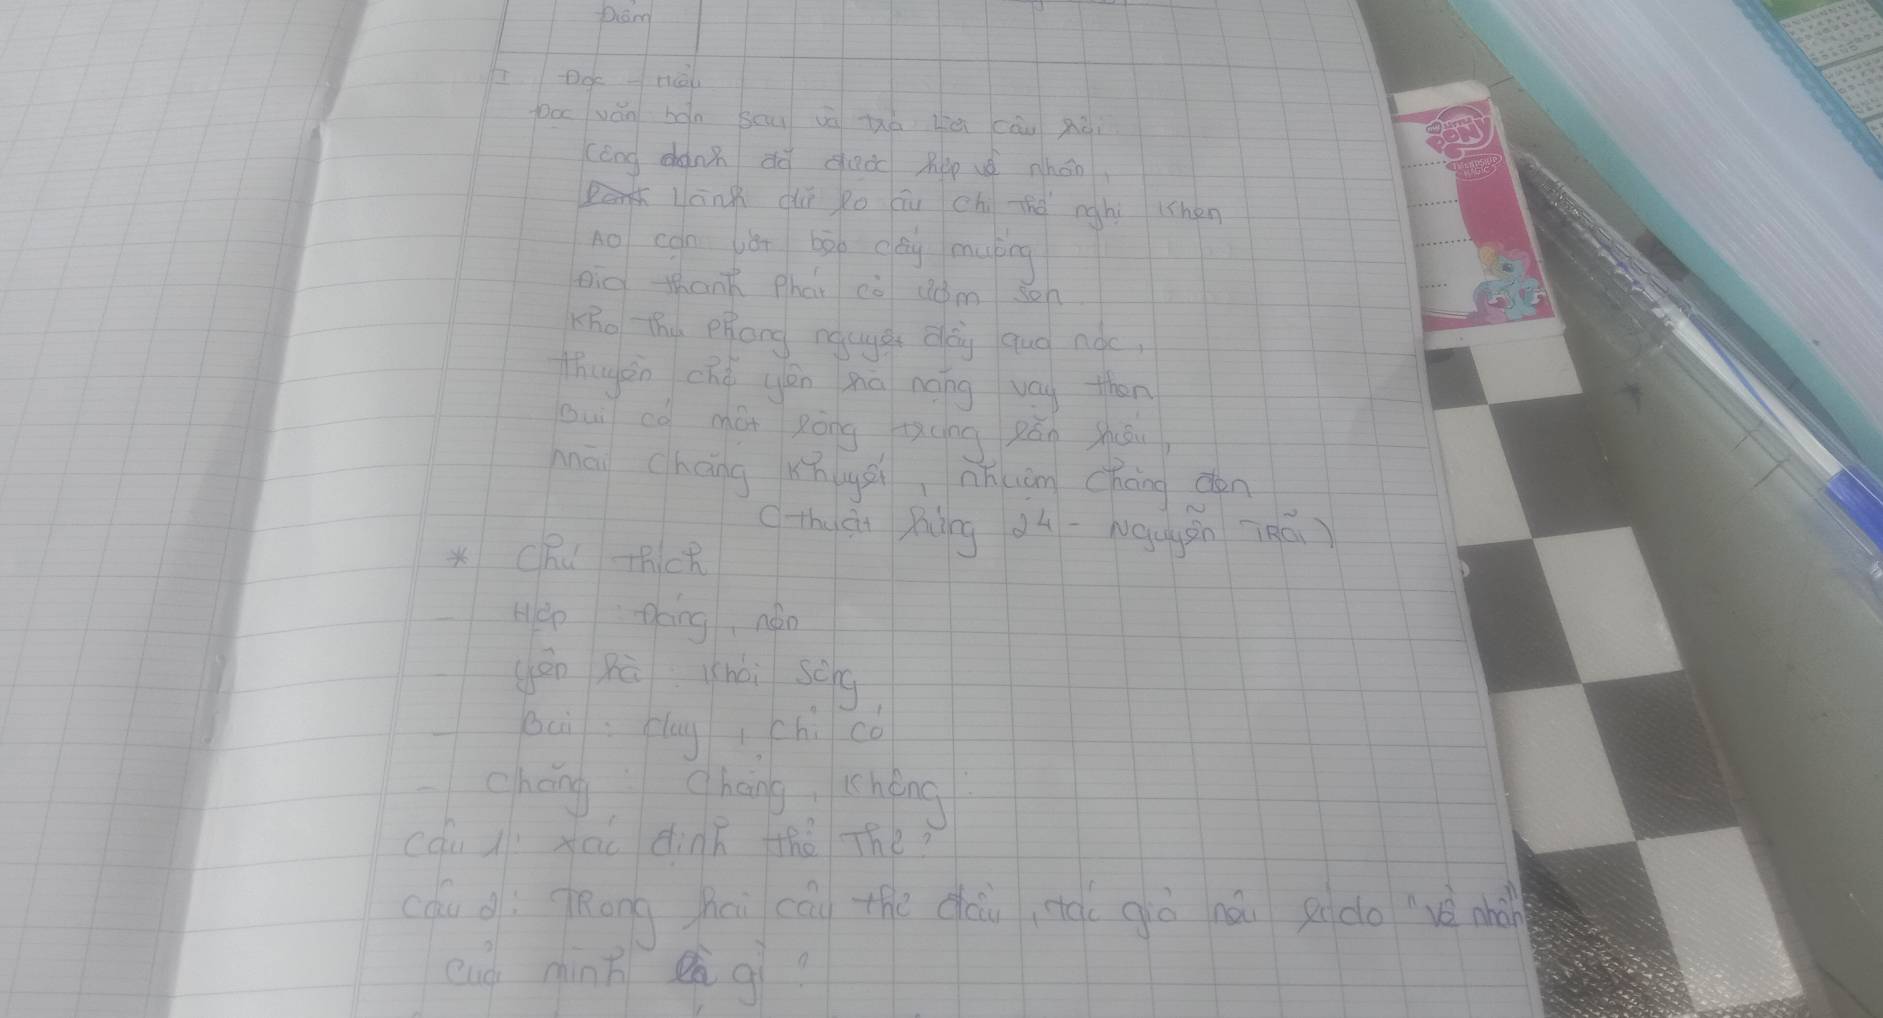 Điểm
I Đọc - hiểu
Đọc văn bản sau và trả lời câu hỏi
Công danh đã được hợp về nhàn,
Lành dữ lo âu chi thế nghị khen
Ao cạn vớt bèo cấy muống
Đìa thanh phát cỏ ươm sen
Kho thu phong nguyệt đầy qua nóc,
Thuyền chở yên hà nặng vạy then
Bui có một lòng trung lẫn hiếu,
Mài chăng khuyết, nhuộm chăng đen
(Thuật hứng 24 - Nguyễn Trãi)
* Chú thích
- Hợp : Đáng, nên
- Yên hà : khói sóng
- Bui : duy, chỉ có
- Chăng : Chẳng, không
Câu 1: Xác định thể thơ?
Câu 2: Trong hai câu thơ đầu, tác giả nêu lí do "về nhàn"
của mình là gì?
My Little PONY
FRIENDSHIP
MAGIC